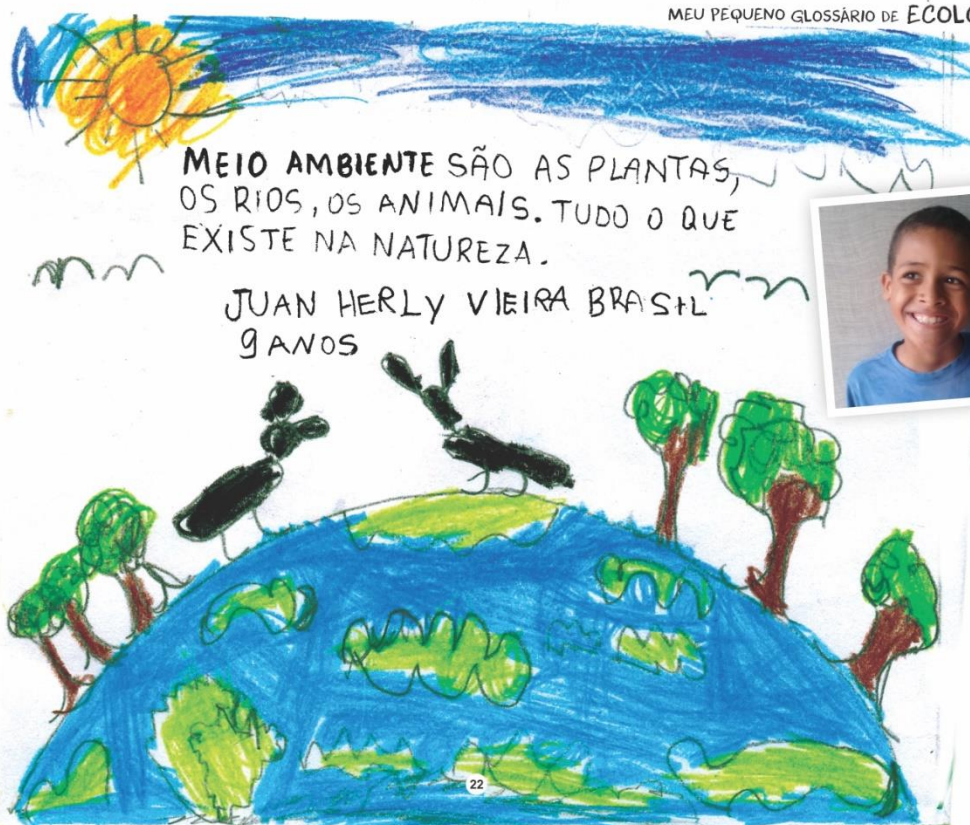 MEU PEQUENO GLOSSÁRIO DE ECOLO
MEIO AMBIENTE SÃO AS PLANTAS,
OS RIOS, OS ANIMAIS. TUDO O QUE
EXISTE NA NATUREZA.
JUAN HERLY VIEIRA BRASIL
9 ANOS
22